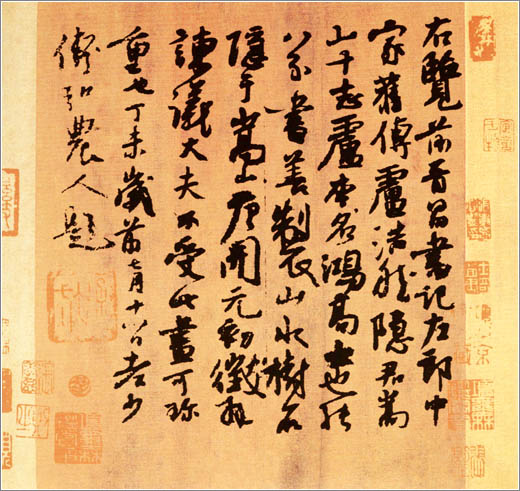 右覽前晉昌書記左郎中
家舊傳盧浩然隱居嵩
山十志盧本名鴻高士也能
八分書善製山水樹石
隱於嵩山唐開元初徵拜
諫議大夫不受此畫可珍
重也丁未歲前七月十八日老少
傅弘農人題